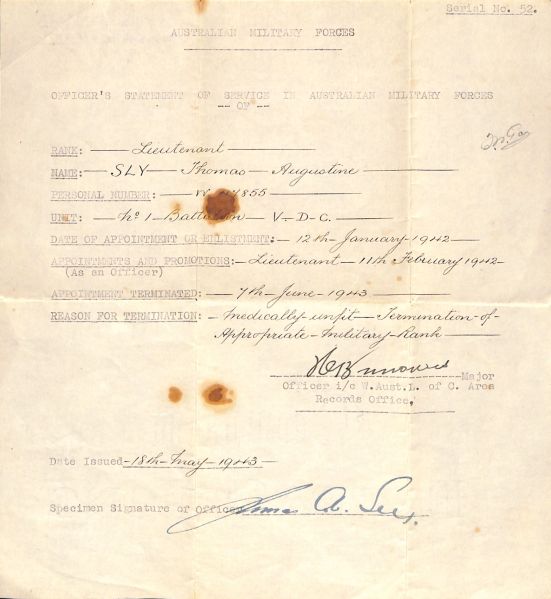 Serial No. 52.
AUSTRALIAN MILITARY FORCES
OFFICER'S STATEMENT OF SERVICE IN AUSTRALIAN MILITARY FORCES
-- OF --
RANK: Lieutenant
NAME: SLY Thomas Augustine
PERSONAL NUMBER:
UNIT: No 1 Battalion V-D-C.
DATE OF APPOINTMENT OR ENLISTMENT: 12th January 1942
APPOINTMENTS AND PROMOTIONS: Lieutenant 11th February 1942
(As an Officer)
APPOINTMENT TERMINATED: 7th June 1943
REASON FOR TERMINATION: Medically unfit Termination of
Appropriate Military Rank
Major
Officer i/c W.Aust.L. of C. Area
Records Office.
Date Issued 18th May 1943
Specimen Signature of Officer